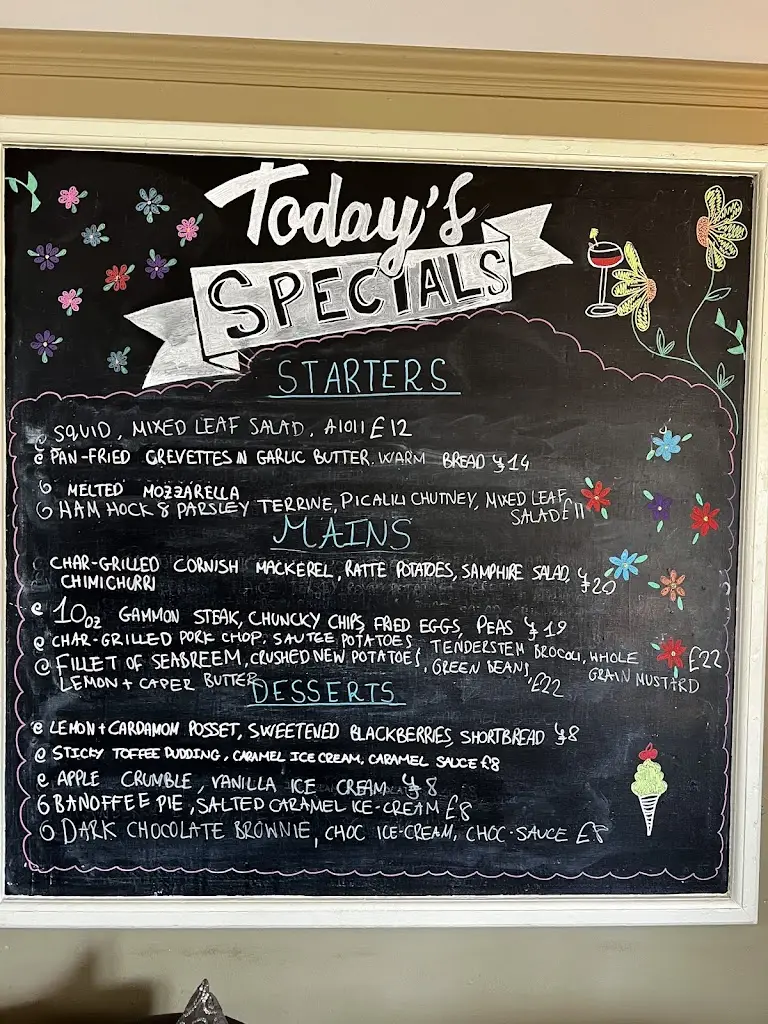 Today's
SPECIALS
STARTERS
SQUID, MIXED LEAF SALAD, AIOLI £12
PAN-FRIED GREVETTES IN GARLIC BUTTER. WARM BREAD £14
MELTED MOZZARELLA
HAM HOCK & PARSLEY TERRINE, PICALILI CHUTNEY, MIXED LEAF
SALAD £11
MAINS
CHAR-GRILLED CORNISH MACKEREL, RATTE POTATOES, SAMPHIRE SALAD, £20
CHIMICHURRI
10oz GAMMON STEAK, CHUNCKY CHIPS, FRIED EGGS, PEAS £19
CHAR-GRILLED PORK CHOP, SAUTEE POTATOES TENDERSTEM BROCOLI, WHOLE £22
GRAIN MUSTARD
FILLET OF SEABREEM, CRUSHED NEW POTATOES, GREEN BEANS,
LEMON + CAPER BUTTER £22
DESSERTS
LEMON + CARDAMOM POSSET, SWEETENED BLACKBERRIES, SHORTBREAD £8
STICKY TOFFEE PUDDING, CARAMEL ICE CREAM, CARAMEL SAUCE £8
APPLE CRUMBLE, VANILLA ICE CREAM £8
BANOFFEE PIE, SALTED CARAMEL ICE-CREAM £8
DARK CHOCOLATE BROWNIE, CHOC ICE-CREAM, CHOC-SAUCE £8